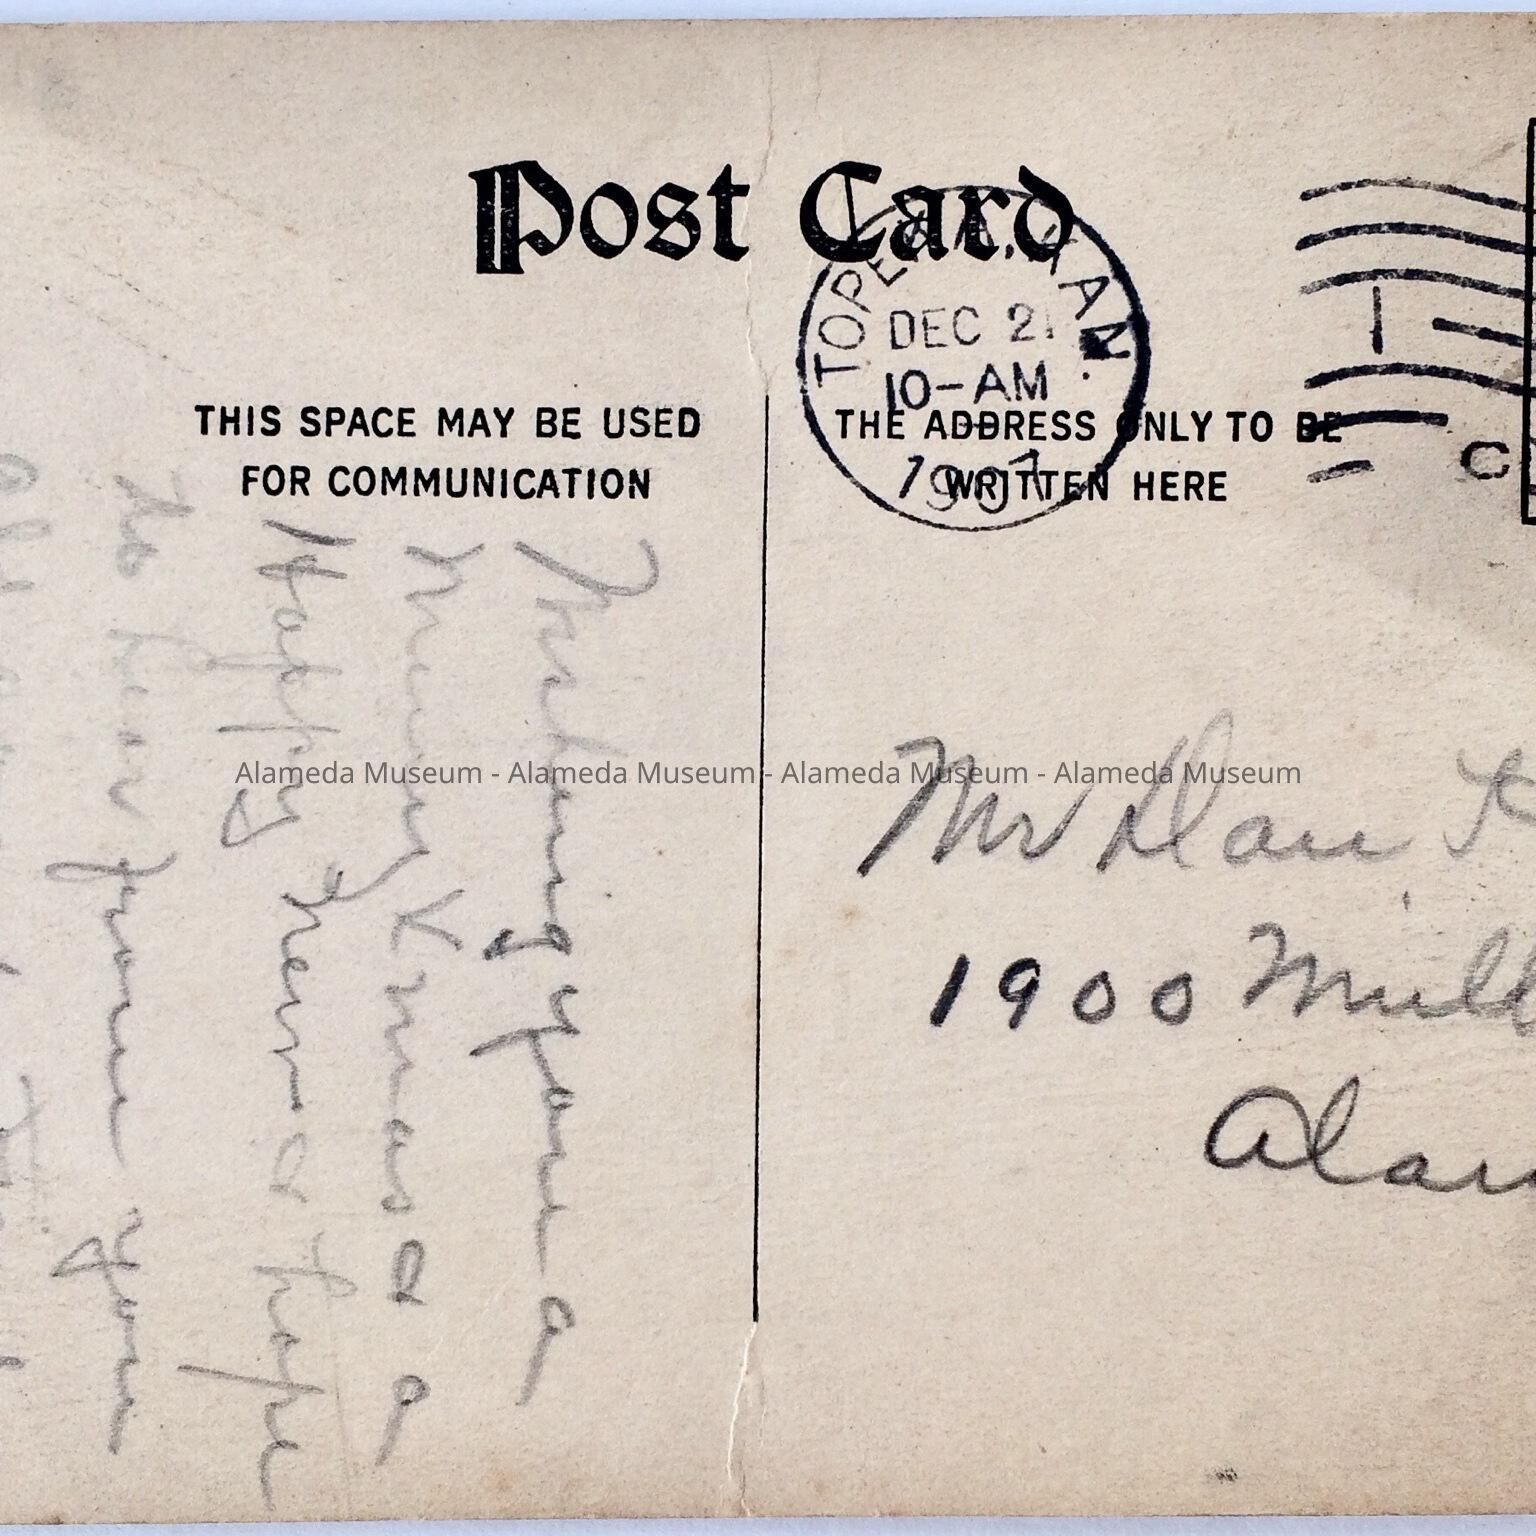 Post Card
TOPEKA, KAN.
DEC 21
10-AM
1907
1
C
THIS SPACE MAY BE USED
FOR COMMUNICATION
THE ADDRESS ONLY TO BE
WRITTEN HERE
Wishing you a
Merry Xmas & a
Happy New & hope
to hear from you
Alameda Museum - Alameda Museum - Alameda Museum - Alameda Museum
Mr Dan
1900
Alam